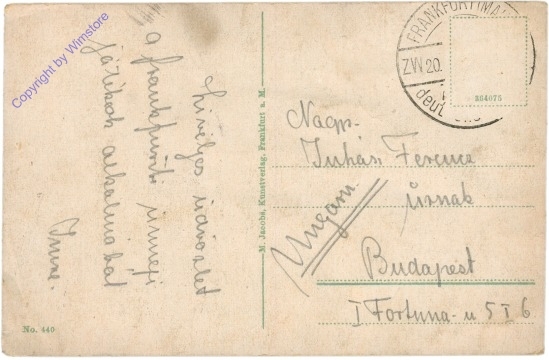 Copyright by Wimstore
Szívélyes üdvözlet
a frankfurti ünnepi
játékok alkalmából
Imre.
No. 440
M. Jacobs, Kunstverlag, Frankfurt a. M.
FRANKFURT (MA
ZW 20.
deut
364075
Nags.
Juhász Ferenc
úrnak
Ungarn
Budapest
I Fortuna-u 5 I 6